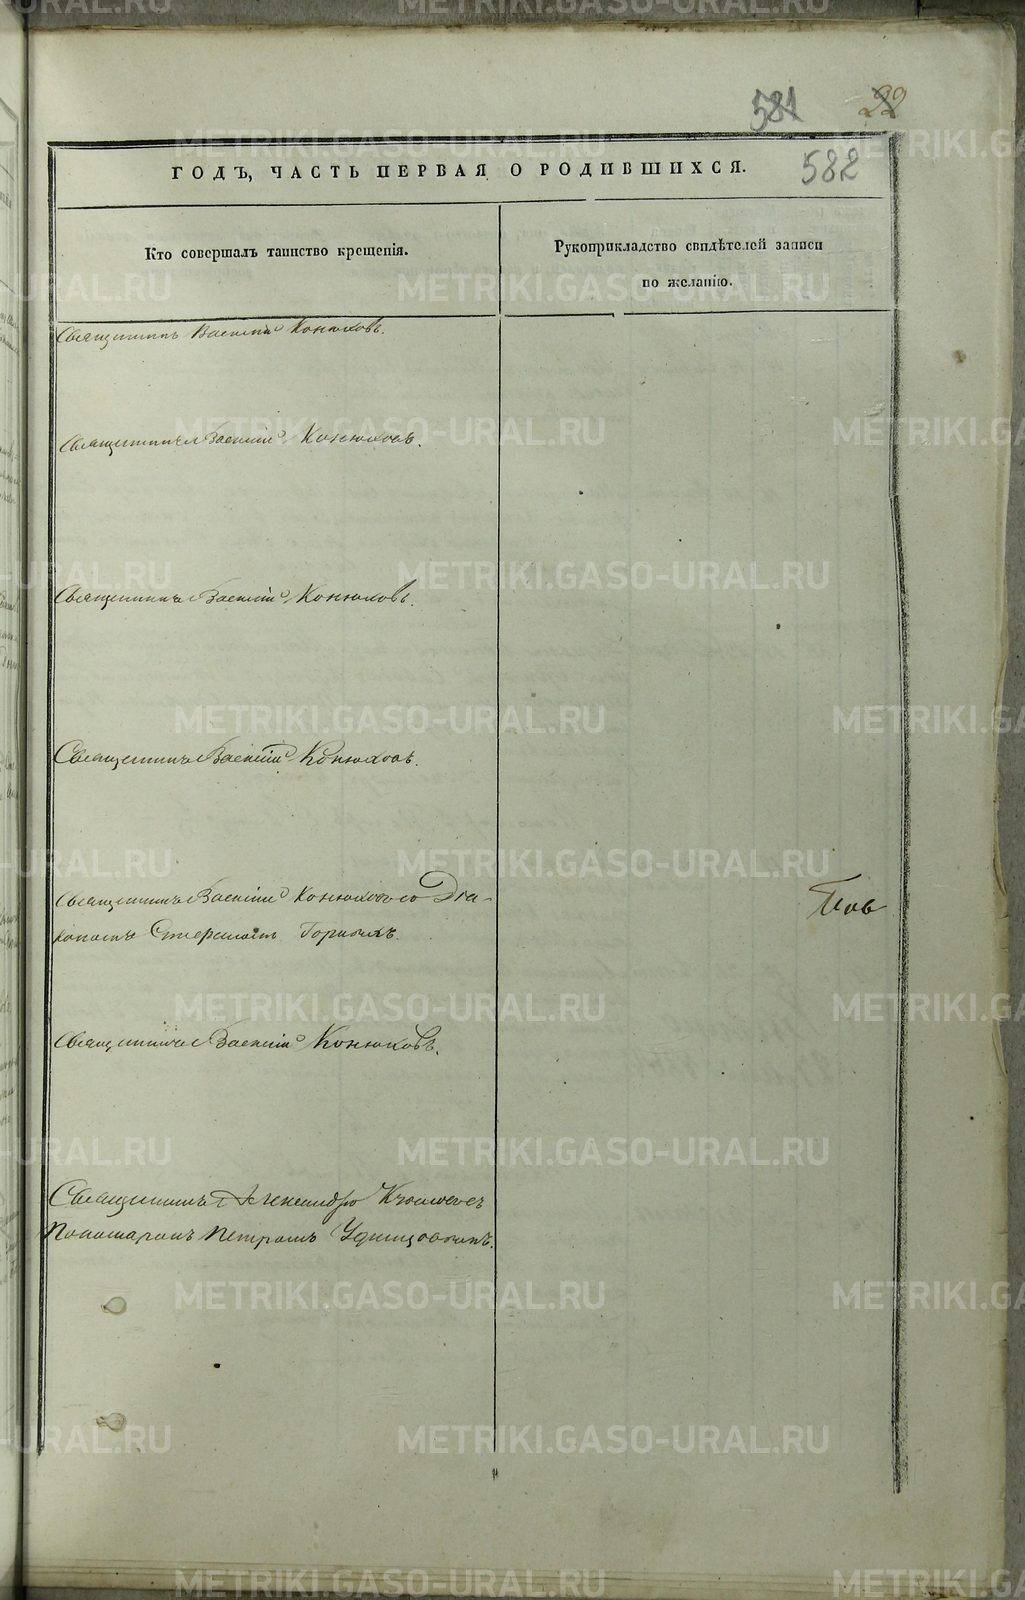 581 22
582
ГОДЪ, ЧАСТЬ ПЕРВАЯ О РОДИВШИХСЯ.
Кто совершалъ таинство крещенія.
Рукоприкладство свидѣтелей записи
по желанію.
Священникъ Василій Конюховъ.
Священникъ Василій Конюховъ.
Священникъ Василій Конюховъ.
Священникъ Василій Конюховъ.
Священникъ Василій Конюховъ со Діа-
кономъ Горныхъ.
Священникъ Василій Конюховъ.
Священникъ Александръ
Пономаремъ Петромъ Удинцовымъ.
METRIKI.GASO-URAL.RU